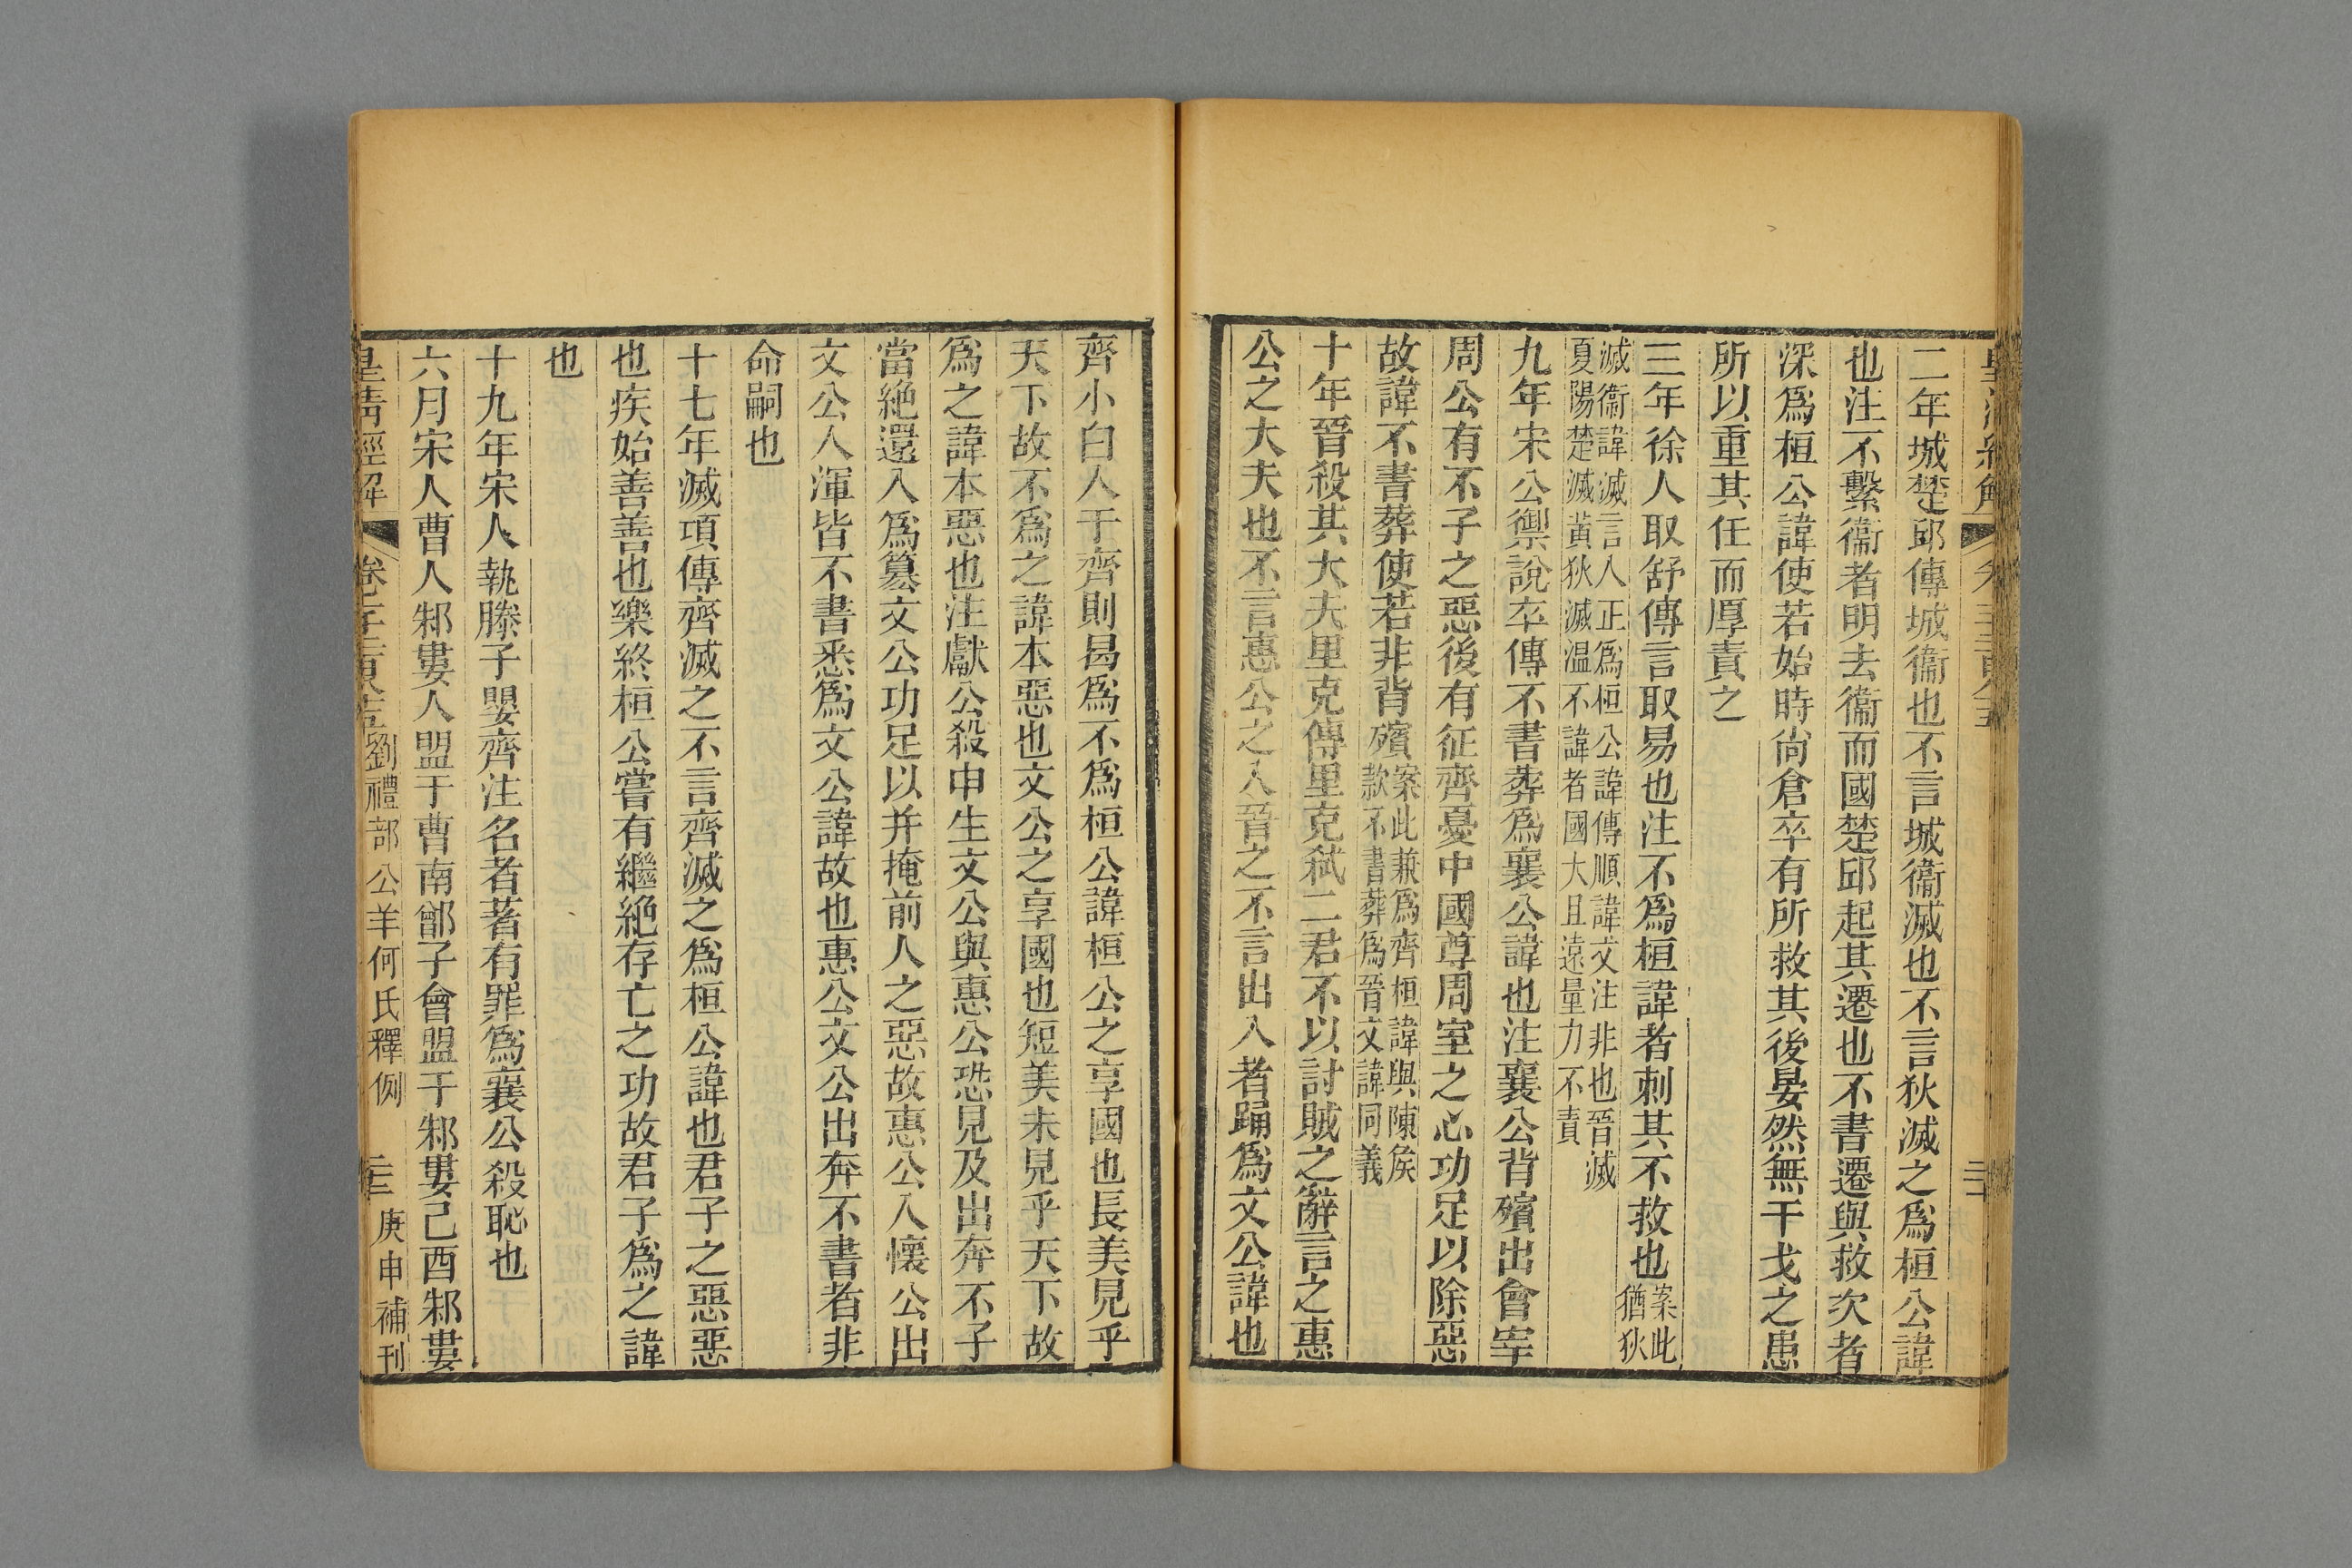 二年城楚邱傳城衞也不言城衞滅也不言狄滅之爲桓公諱
也注不繫衞者明去衞而國楚邱起其遷也不書遷與救次者
深爲桓公諱使若始時尙倉卒有所救其後晏然無干戈之患
所以重其任而厚責之
三年徐人取舒傳言取易也注不爲桓諱者刺其不救也案此猶狄
滅衞諱滅言人正爲桓公諱傳順諱文注非也晉滅
夏陽楚滅黃狄滅溫不諱者國大且遠量力不責
九年宋公禦說卒傳不書葬爲襄公諱也注襄公背殯出會宰
周公有不子之惡後有征齊憂中國尊周室之心功足以除惡
故諱不書葬使若非背殯案此兼爲齊桓諱與陳侯款不書葬爲晉文諱同義
十年晉殺其大夫里克傳里克弒二君不以討賊之辭言之惠
公之大夫也不言惠公之入晉之不言出入者踊爲文公諱也
齊小白入于齊則曷爲不爲桓公諱桓公之享國也長美見乎
天下故不爲之諱本惡也文公之享國也短美未見乎天下故
爲之諱本惡也注獻公殺申生文公與惠公恐見及出奔不子
當絕還入爲篡文公功足以并掩前人之惡故惠公入懷公出
文公入渾皆不書悉爲文公諱故也惠公文公出奔不書者非
命嗣也
十七年滅項傳齊滅之不言齊滅之爲桓公諱也君子之惡惡
也疾始善善也樂終桓公嘗有繼絕存亡之功故君子爲之諱
也
十九年宋人執滕子嬰齊注名者著有罪爲襄公殺恥也
六月宋人曹人邾婁人盟于曹南鄫子會盟于邾婁己酉邾婁
皇清經解 劉禮部公羊何氏釋例 庚申補刊